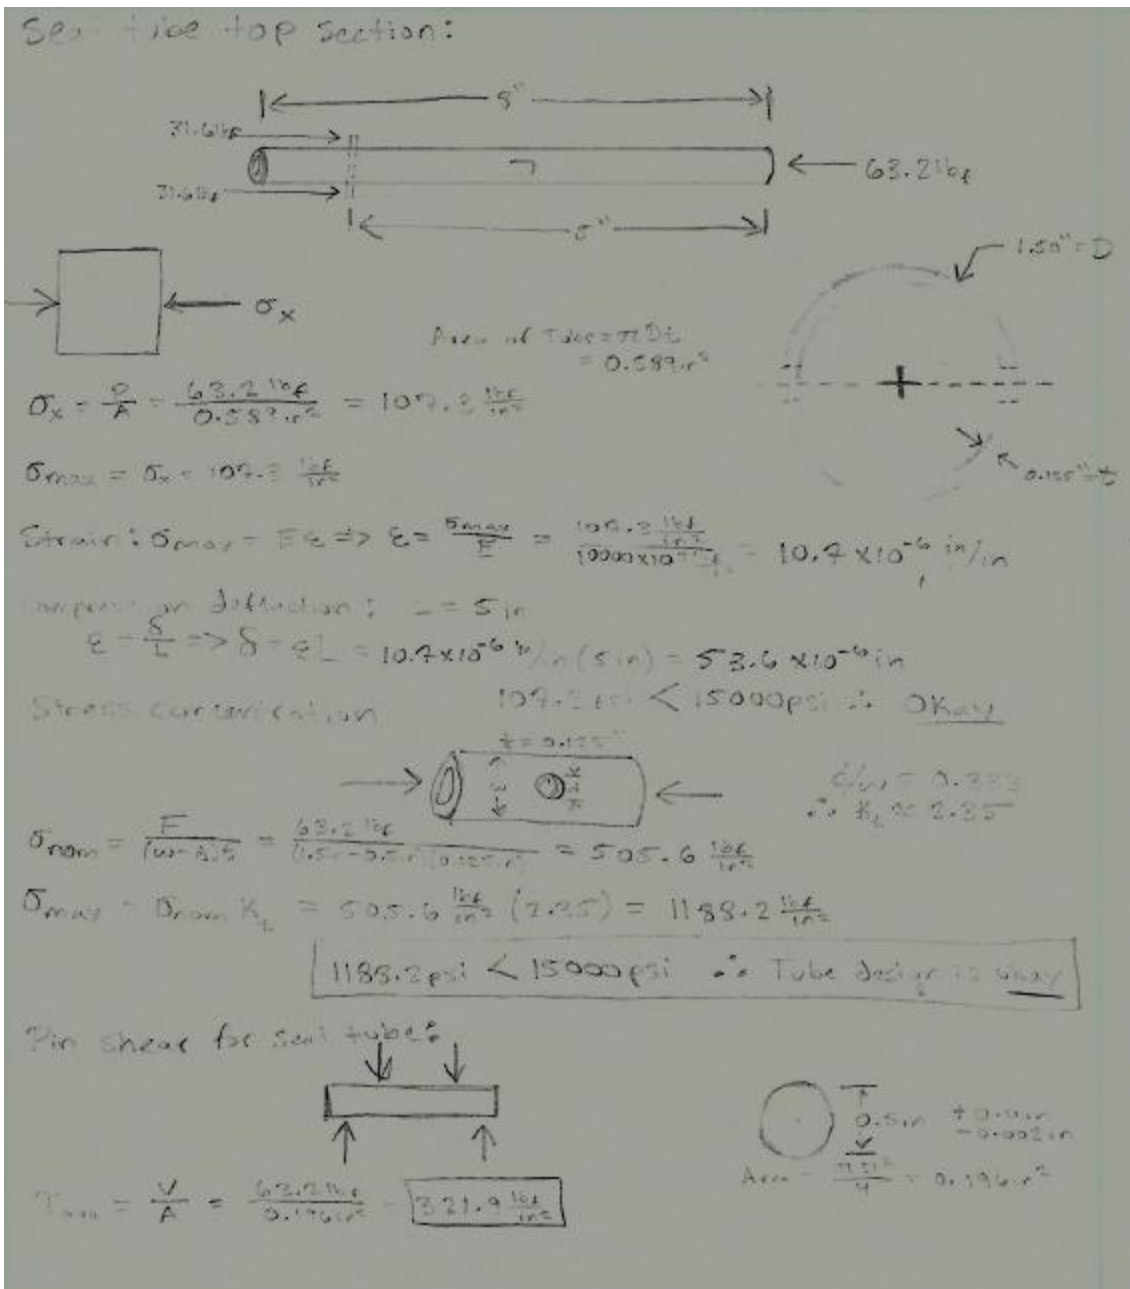 Seat tube top section:
8"
31.6lbf
63.2lbf
31.6lbf
5"
1.50"=D
σx
Area of Tube=πDt
= 0.589in²
σx = P/A = 63.2 lbf/0.589in² = 107.3 lbf/in²
0.125"=t
σmax = σx = 107.3 lbf/in²
Strain: σmax = Eε => ε = σmax/E = 107.3 lbf/in² / = 10.7 x10⁻⁶ in/in
Compression deflection: L = 5in
ε = δ/L => δ = εL = 10.7x10⁻⁶ in/in (5in) = 53.6 x10⁻⁶ in
Stress concentration 107.3 psi < 15000psi ∴ Okay
t = 0.125"
d/w = 0.333
∴ Kt ≈ 2.35
σnom = F/(w-d)t = 63.2 lbf/(1.5in-0.5in)(0.125in) = 505.6 lbf/in²
σmax = σnom Kt = 505.6 lbf/in² (2.35) = 1188.2 lbf/in²
1188.2psi < 15000psi ∴ Tube design is okay
Pin shear for seat tube:
0.5in
-0.002in
Area = = 0.196in²
= V/A = 63.2lbf/0.196in² = 321.9 lbf/in²